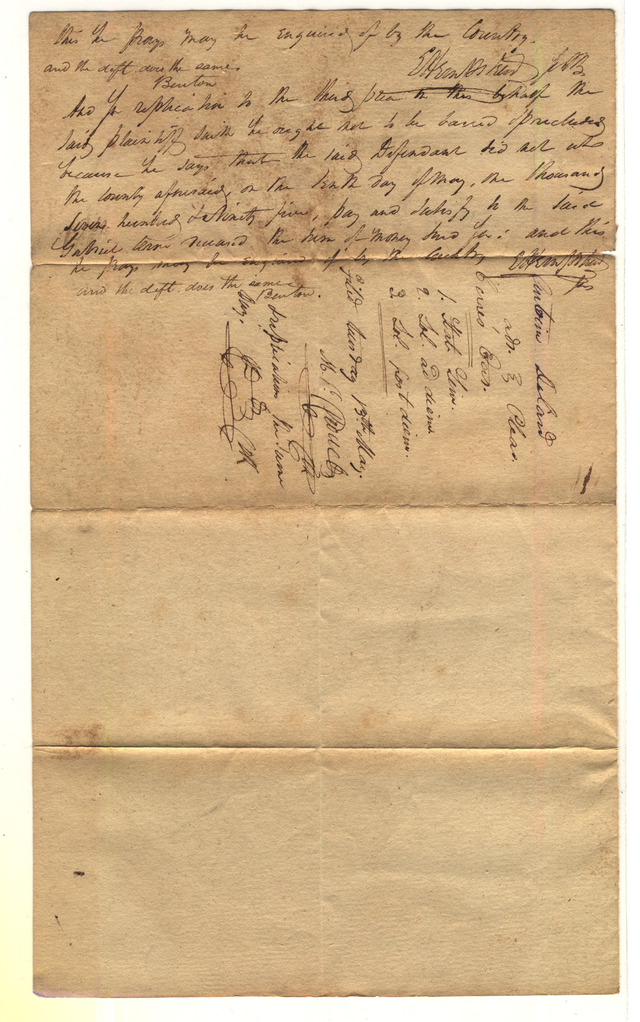 this he prays may be enquired of by the Country.
and the deft. does the same.
Benton
And for replication to the third plea in this behalf the
said plaintiff saith he ought not to be barred or precluded
because he says that the said Defendant did not at
the county aforesaid, on the tenth day of May, one thousand
seven hundred & ninety five, pay and satisfy to the said
Gabriel deceased the sum of money sued for: and this
he prays may be enquired of by the Country
and the deft. does the same.
Benton.
adr.
Pleas.
1. Stat. Lim.
2. Sol. ad diem
3. Sol. post diem.
filed tuesday 13th May.
replication the same
day.